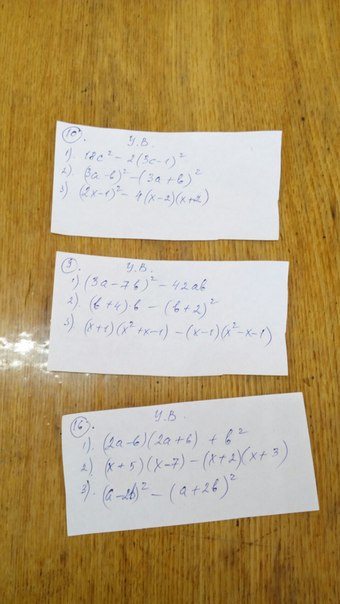 10.
У.В.
1) 18c² – 2(3c–1)²
2). (3a–b)² – (3a+b)²
3) (2x–1)² – 4(x–2)(x+2)
3.
У.В.
1) (3a–7b)² – 42ab
2) (b+4)·b – (b+2)²
3) (x+1)(x²+x–1) – (x–1)(x²–x–1)
16.
У.В.
1). (2a–b)(2a+b) + b²
2) (x+5)(x–7) – (x+2)(x+3)
3). (a–2b)² – (a+2b)²